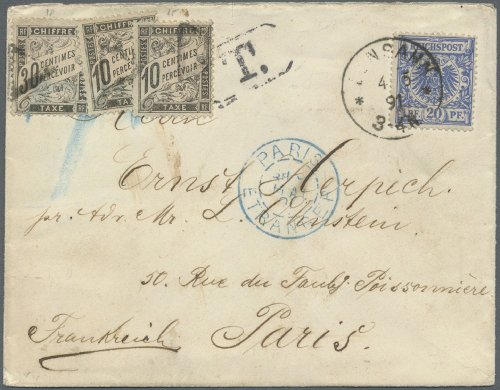 CHIFFRE CHIFFRE CHIFFRE
30 CENTIMES A PERCEVOIR
10 CENTIMES A PERCEVOIR
10 CENTIMES A PERCEVOIR
TAXE TAXE
T.
4
91
3-4
REICHSPOST
20 PF. 20
Herrn
PARIS
ETRANGER
Ernst Kerpich.
pr. Adr. Mr. L.
50. Rue du Faubg Poissonnière
Frankreich Paris.